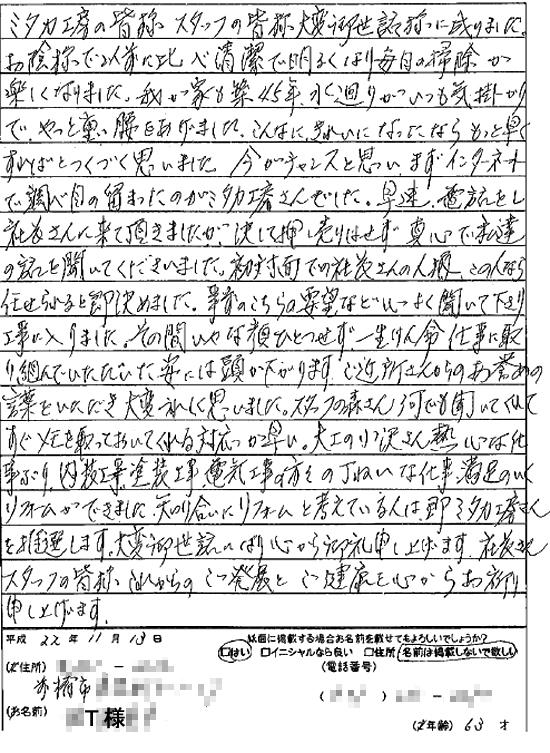 ミタカ工房の皆様、スタッフの皆様大変御世話様に成りました。
お陰様で以前に比べ清潔で明るくなり毎日の掃除が
楽しくなりました。我が家も築45年、水廻りがいつも気掛かり
で、やっと重い腰をあげました。こんなに、きれいになったならもっと早く
すればとつくづく思いました。今がチャンスと思い、まずインターネット
で調べ目の留まったのがミタカ工房さんでした。早速、電話をし
社長さんに来て頂きましたが、決して押し売りはせず真心で私達
の話を聞いてくださいました。初対面での社長さんの人柄、この人なら
任せられると即決めました。事前のこちらの要望など心よく聞いて下さり
工事に入りました。その間いやな顔ひとつせず、一生けん命仕事に取
り組んでいただいた姿には頭が下がります。ご近所さんからのお誉めの
言葉をいただき大変うれしく思いました。スタッフの森さん何でも聞いてくれて
すぐメモを取っておいてくれる対応が早い。大工の小沢さん熱心な仕
事ぶり、内装工事塗装工事、電気工事の方々の丁ねいな仕事、満足のいく
リフォームができました。知り合いにリフォームと考えている人は即ミタカ工房さん
を推選します。大変御世話になり心から御礼申し上げます。社長さん
スタッフの皆様、これからのご発展とご健康を心からお祈り
申し上げます。
平成 22年 11月 13日
紙面に掲載する場合お名前を載せてもよろしいでしょうか?
□はい □イニシャルなら良い □住所・名前は掲載しないで欲しい
(ご住所)
(電話番号)
市
(お名前) T様
(ご年齢) 63 才